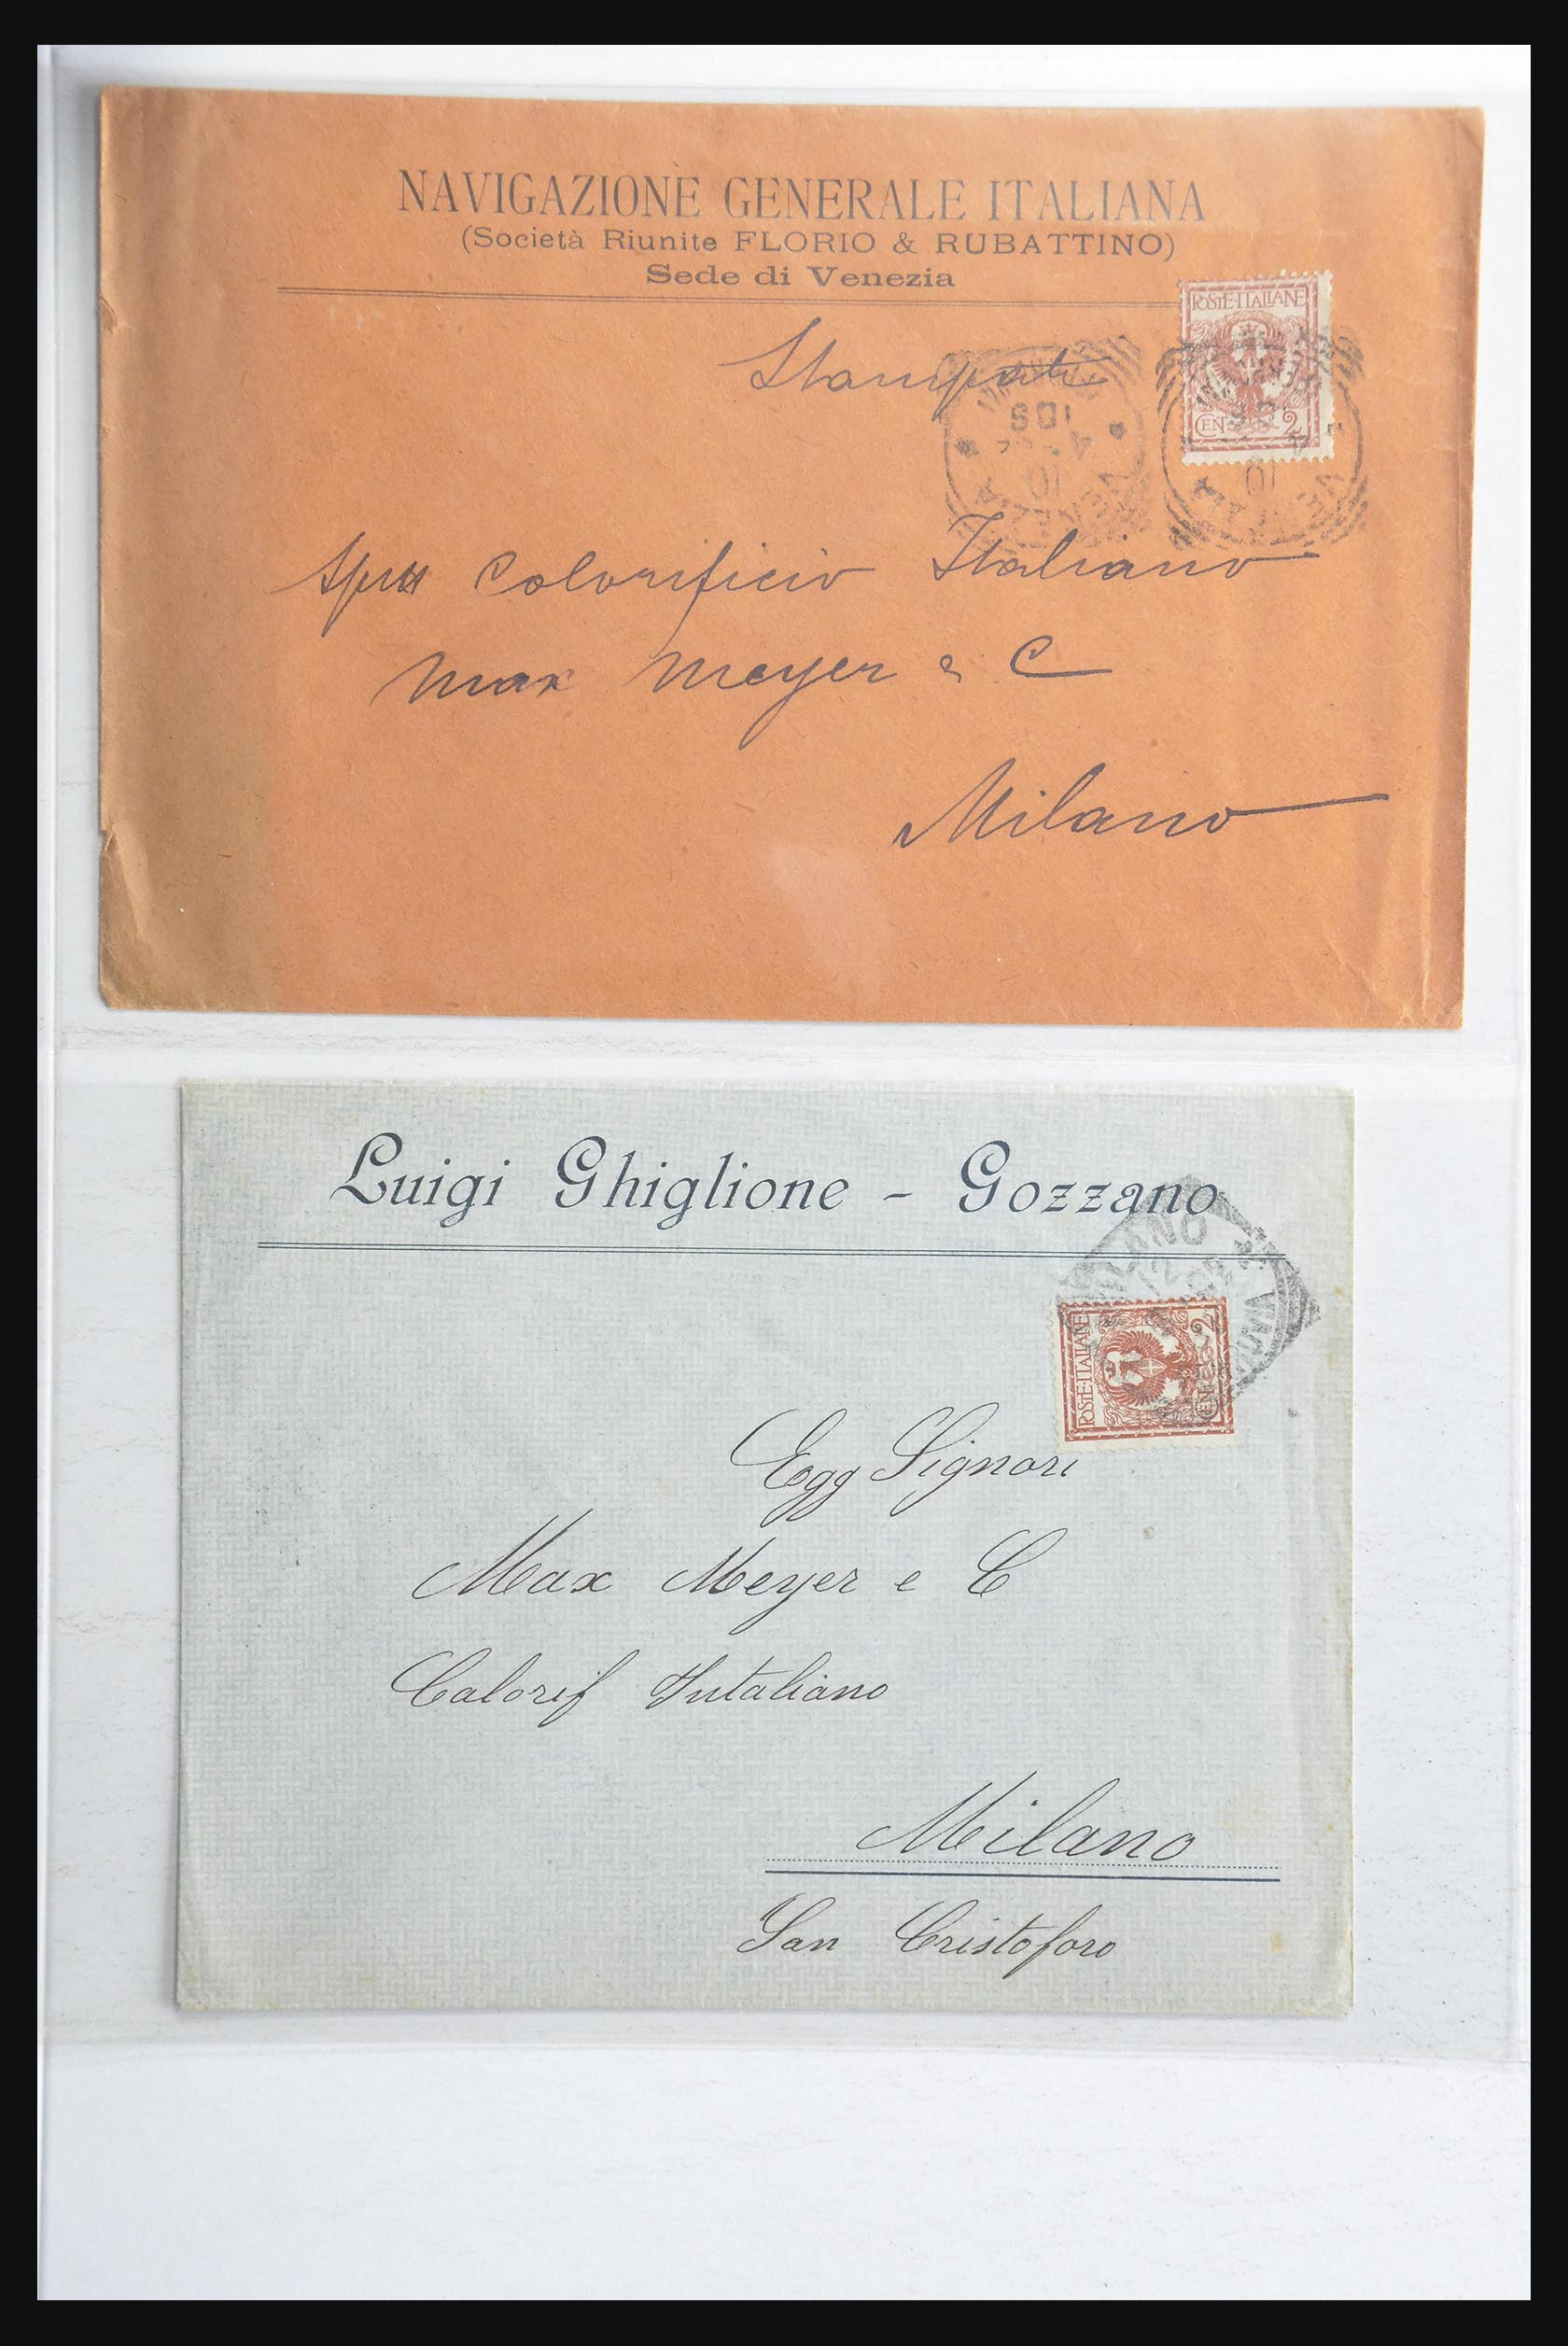 NAVIGAZIONE GENERALE ITALIANA
(Società Riunite FLORIO & RUBATTINO)
Sede di Venezia
POSTE·ITALIANE
CEN 2
Stampati
VENEZIA
10
Colorificio Italiano
Max Meyer e C
Milano
Luigi Ghiglione - Gozzano
MILANO
12
POSTE·ITALIANE
CEN 2
Egg Signori
Max Meyer e C
Calorif Intaliano
Milano
San Cristoforo